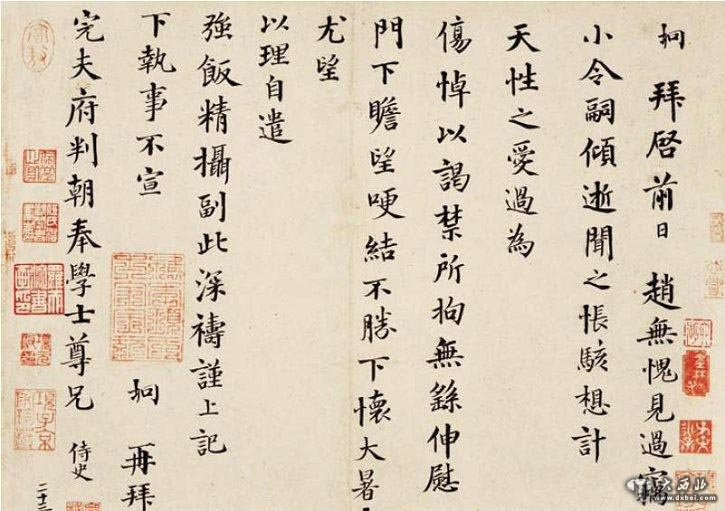 拜啓前日趙無愧見過竊
小令嗣傾逝聞之悵駭想計
天性之愛過為
傷悼以謁禁所拘無繇伸慰
門下瞻望哽結不勝下懷大暑
尤望
以理自遣
強飯精攝副此深禱謹上記
下執事不宣
再拜
完夫府判朝奉學士尊兄 侍史
二十三
大西北
www.dxbei.com